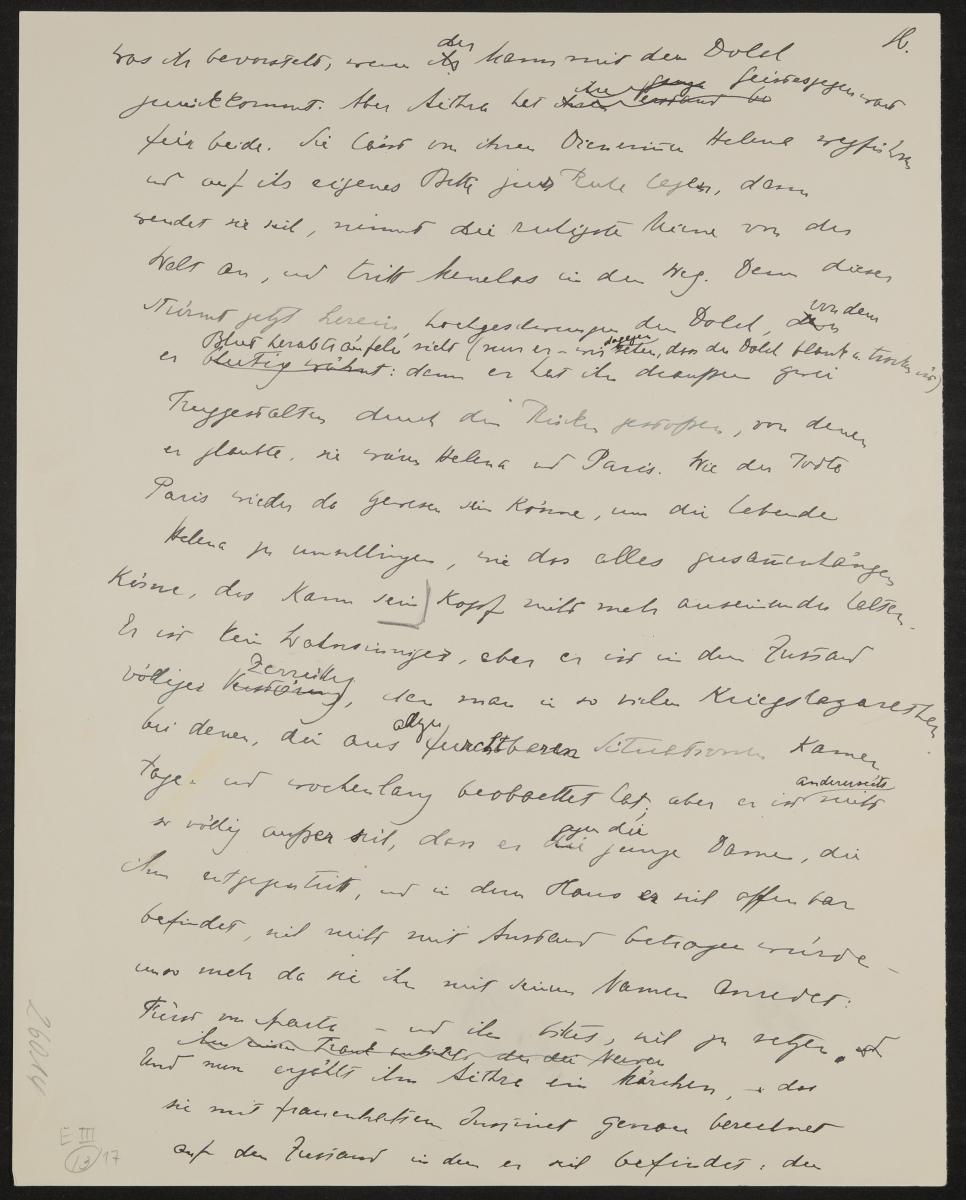 16.
was ihr bevorsteht, wenn der Mann mit dem Dolch
zurückkommt. Aber Aithra hat ihre ganze Geistesgegenwart
für beide. Sie lässt von ihren Dienerinnen Helena wegführen
und auf ihr eigenes Bette zur Ruhe legen, dann
wendet sie sich, nimmt die ruhigste Miene von der
Welt an, und tritt Menelas in den Weg. Denn dieser
stürmt jetzt herein, hochgeschwungen den Dolch, von dem
Blut herabträufeln sieht (nur er – wir sehen dagegen, dass der Dolch blank u. trocken ist)
er blutig wähnt: denn er hat ihn draussen zwei
Truggestalten durch die Rücken gestoßen, von denen
er glaubte, sie wären Helena und Paris. Wie der todte
Paris wieder da gewesen sein könne, um die lebende
Helena zu umschlingen, wie das alles zusammenhängen
könne, das kann sein Kopf nicht mehr auseinander halten.
Er ist kein Wahnsinniger, aber er ist in dem Zustand
völliger Zerrüttung, den man in so vielen Kriegslazarethen
bei denen, die aus allzu furchtbaren Situationen kamen
tage- und wochenlang beobachtet hat; aber er ist andererseits nicht
so völlig außer sich, dass er gegen die junge Dame, die
ihm entgegentritt, und in deren Haus er sich offenbar
befindet, sich nicht mit Anstand betragen würde –
umso mehr da sie ihn mit seinem Namen anredet:
Fürst von Sparta – und ihn bittet, sich zu setzen.
ihm einen Trank anbietet der die Nerven
Und nun erzählt ihm Aithra ein Märchen, – das
sie mit frauenhaftem Instinct genau berechnet
auf den Zustand in dem er sich befindet: den
26014
E III
13 17